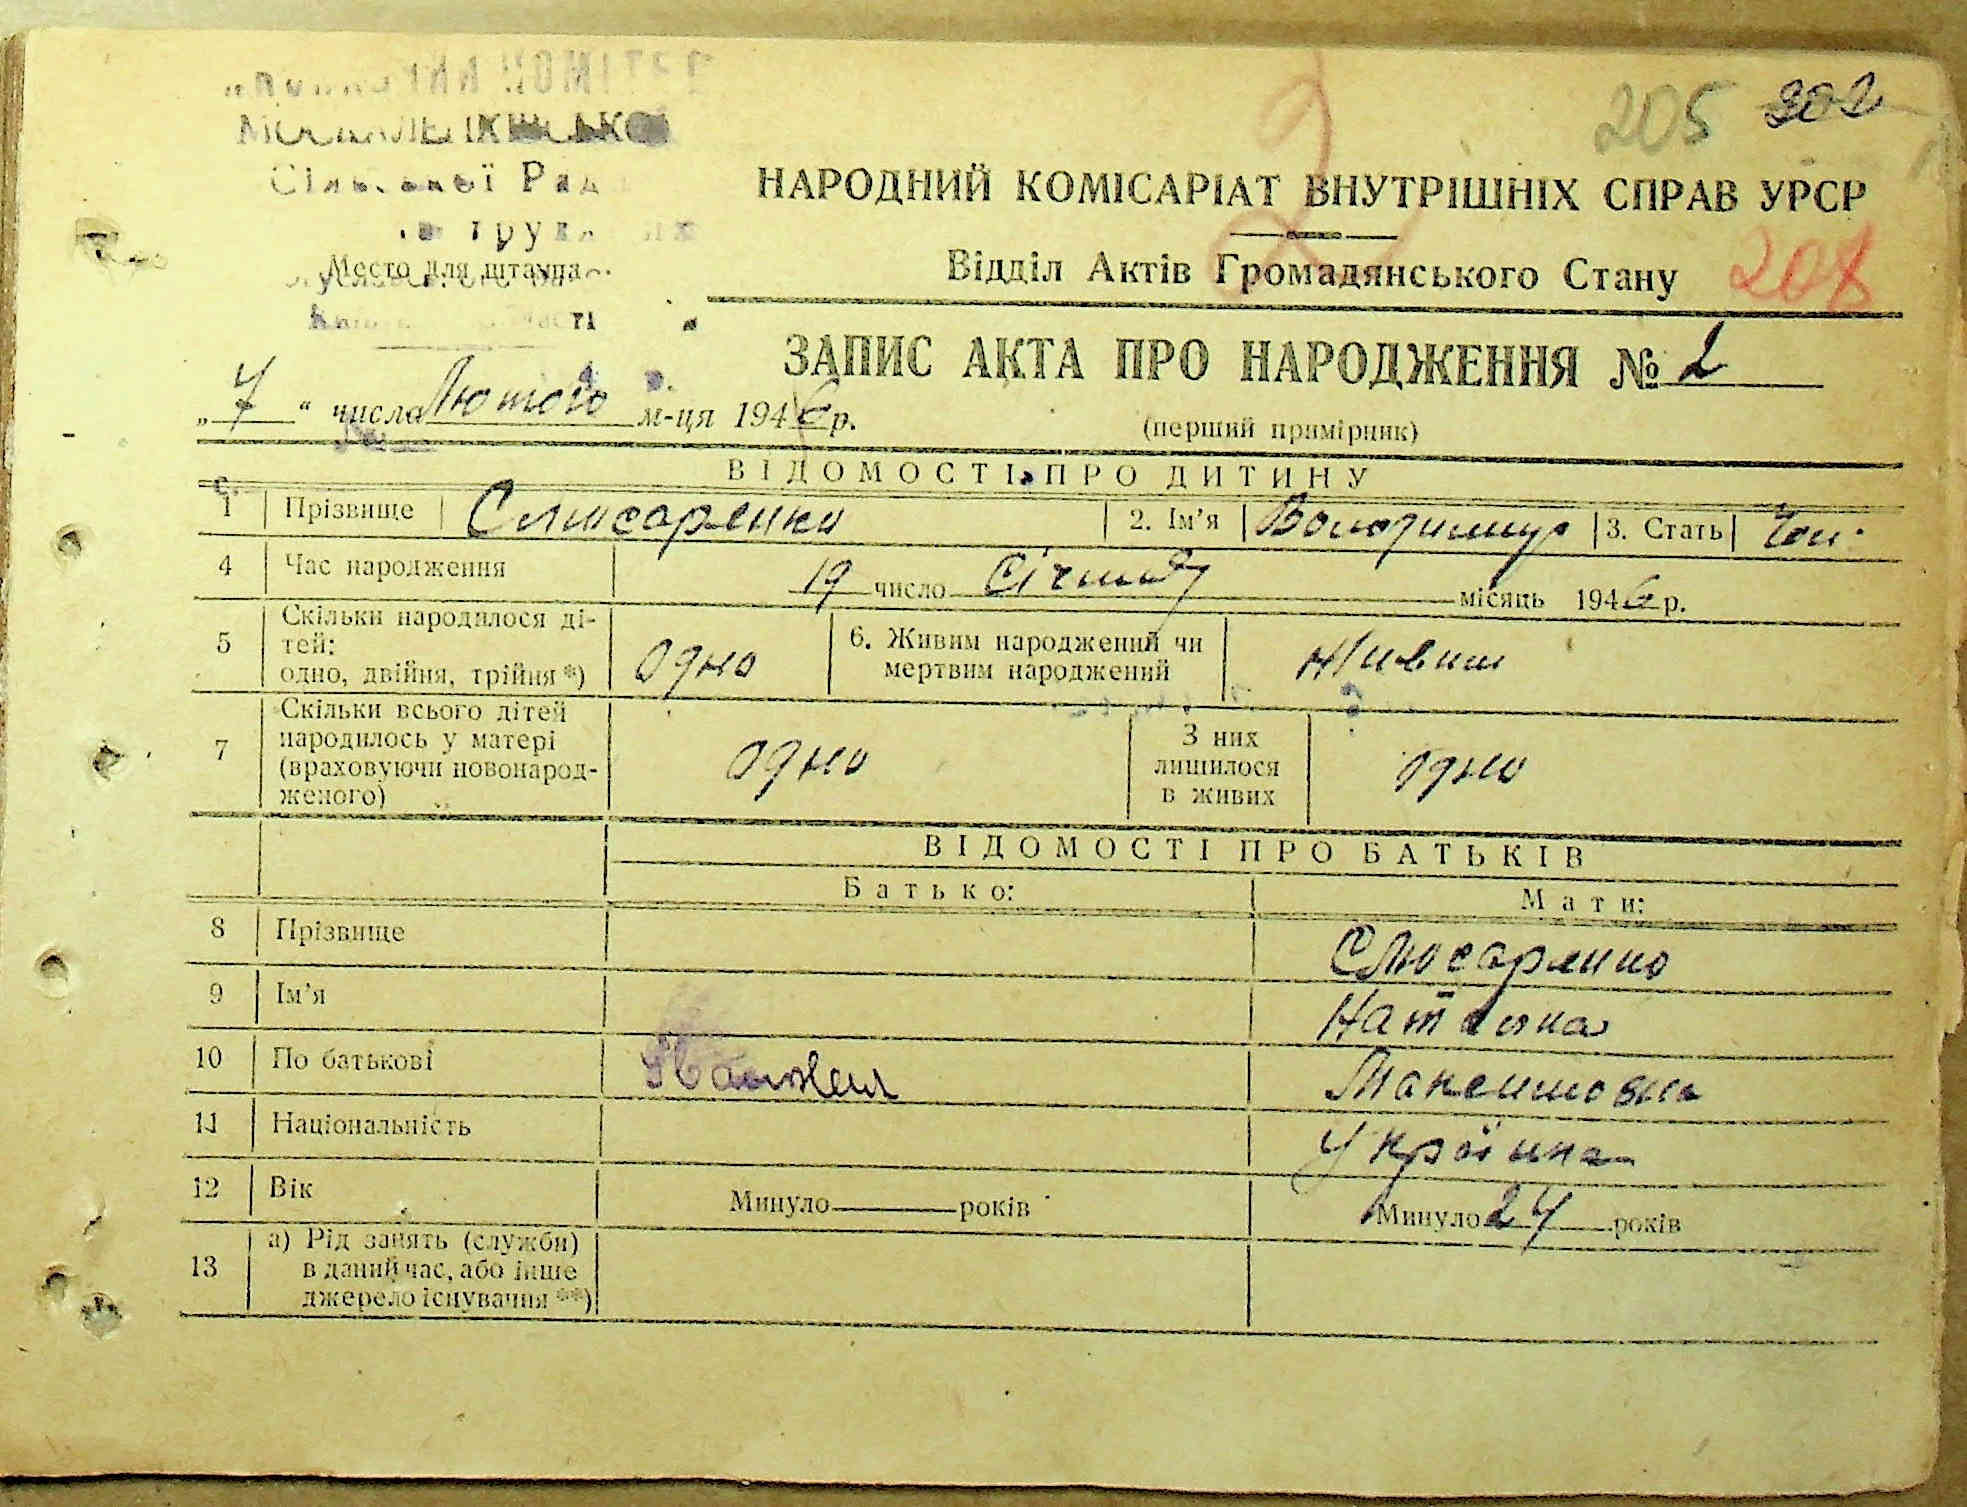 205 302
НАРОДНИЙ КОМІСАРІАТ ВНУТРІШНІХ СПРАВ УРСР
Відділ Актів Громадянського Стану 208
Место для штампа
ЗАПИС АКТА ПРО НАРОДЖЕННЯ № 2
„7“ числа Лютого м-ця 1946 р.
(перший примірник)
ВІДОМОСТІ ПРО ДИТИНУ
1 Прізвище Слюсаренко 2. Ім'я Володимир 3. Стать Чол.
4 Час народження 19 число Січня місяць 1946 р.
5 Скільки народилося ді-
тей:
одно, двійня, трійня *) Одно 6. Живим народжений чи
мертвим народжений Живим
7 Скільки всього дітей
народилось у матері
(враховуючи новонарод-
женого) одно З них
лишилося
в живих одно
ВІДОМОСТІ ПРО БАТЬКІВ
Батько: Мати:
8 Прізвище Слюсаренко
9 Ім'я
10 По батькові Максимовна
11 Національність Українка
12 Вік Минуло років Минуло 24 років
13 а) Рід занять (служби)
в даний час, або інше
джерело існування **)